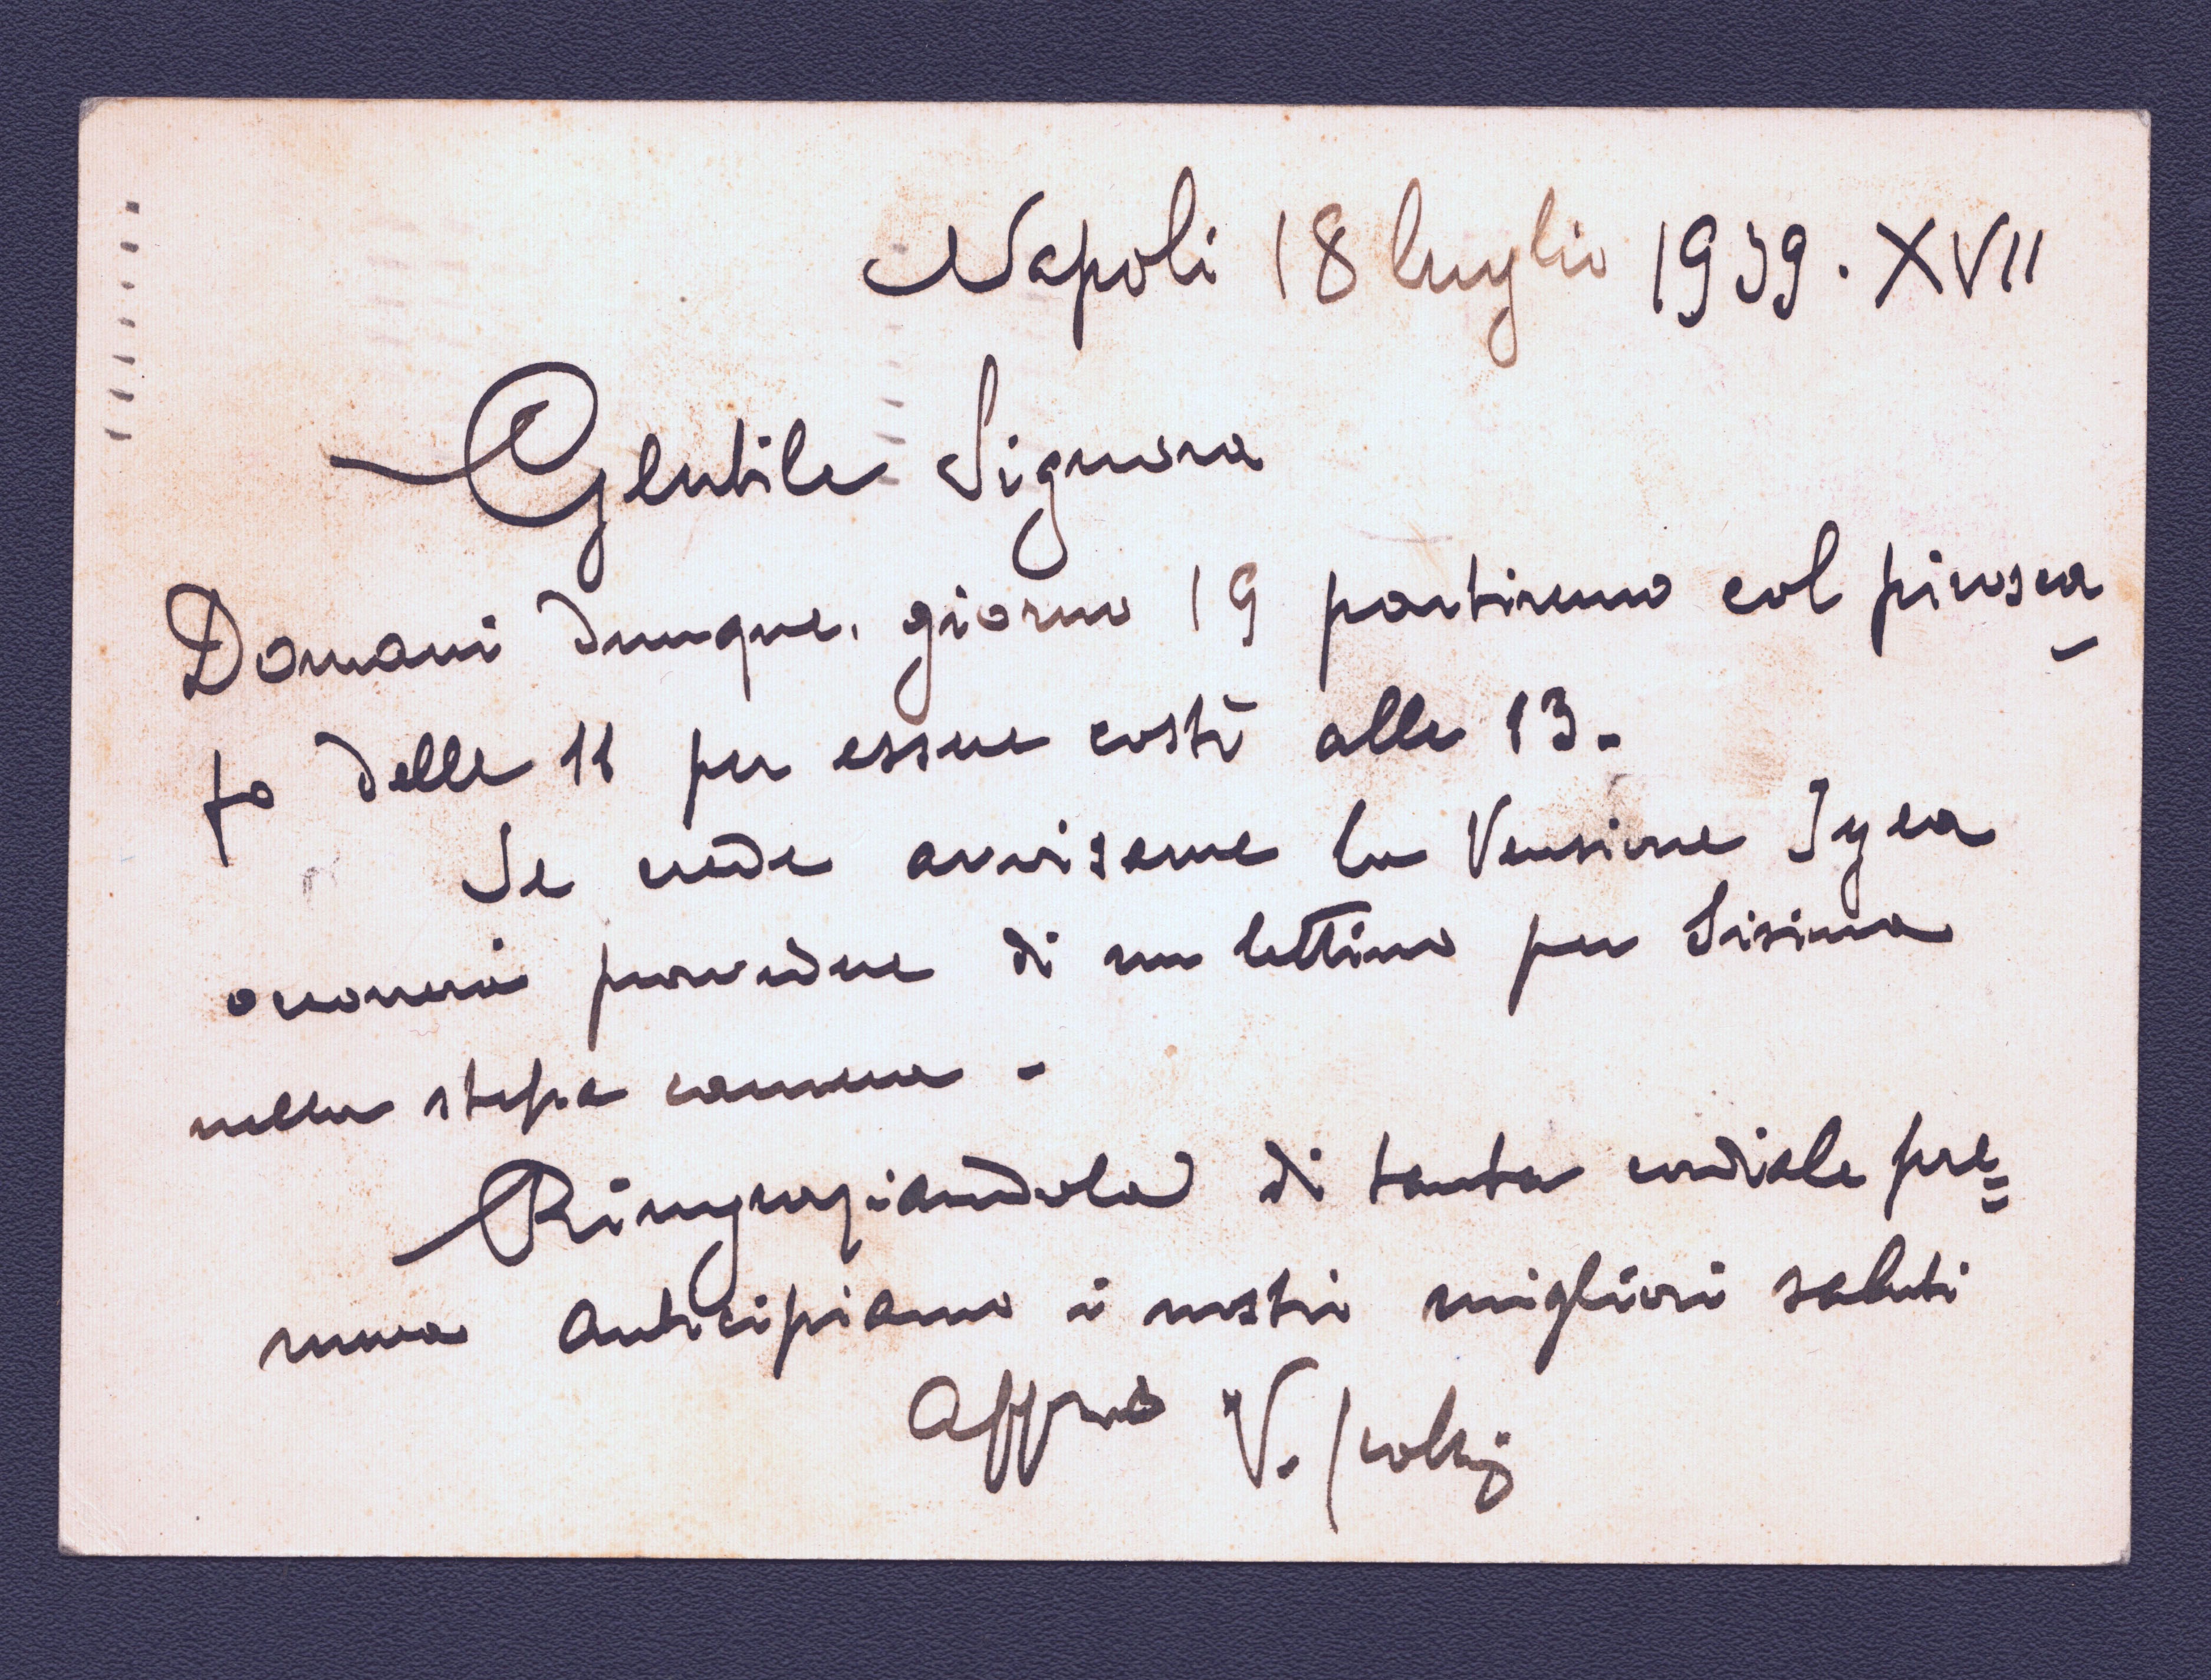 Napoli 18 luglio 1939. XVII
Gentile Signora
Domani dunque, giorno 19 partiremo col pirosca-
fo delle 11 per essere costì alle 13.-
Se crede avvisarne la Pensione Igea
occorrerà provvedere di un lettino per Sisina
nella stessa camera -
Ringraziandola di tanta cordiale pre=
mura anticipiamo i nostri migliori saluti
Affmo V.